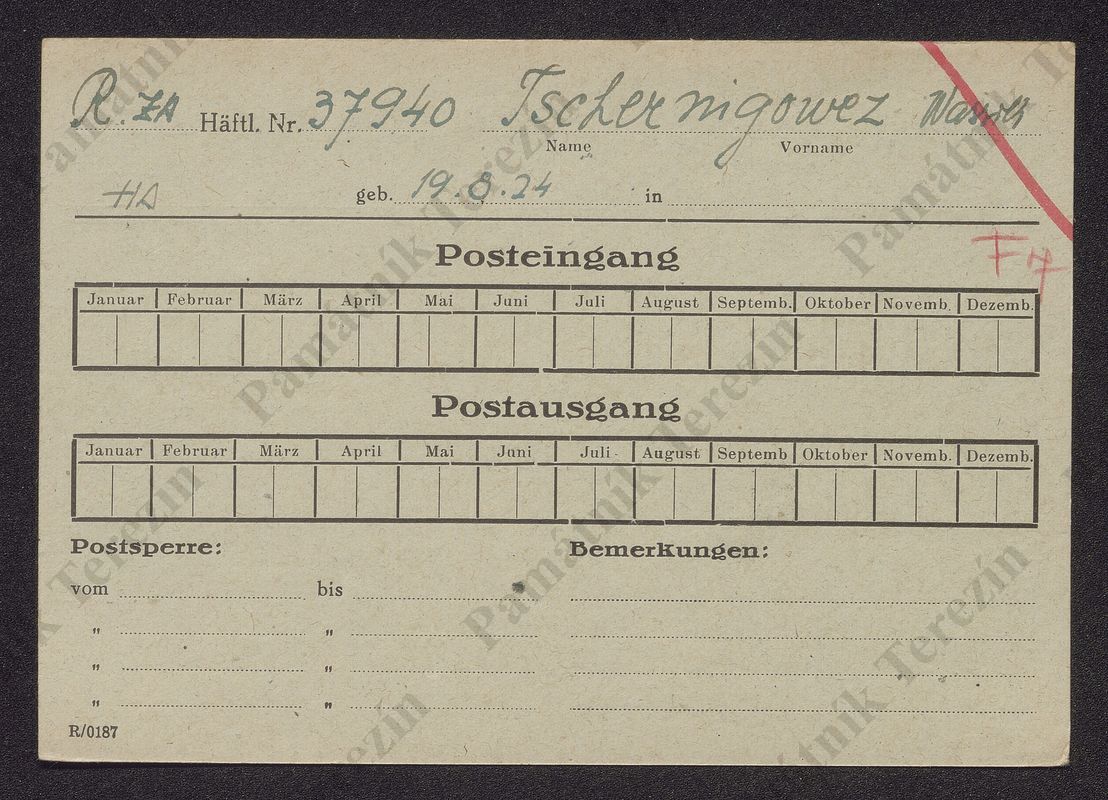 R. ZA Häftl. Nr. 37940 Tschernigowez
Name Vorname
geb. 19.8.24 in
Posteingang
Januar Februar März April Mai Juni Juli August Septemb. Oktober Novemb. Dezemb.
Postausgang
Januar Februar März April Mai Juni Juli August Septemb Oktober Novemb. Dezemb.
Postsperre: Bemerkungen:
vom bis
" "
" "
" "
R/0187
Památník Terezín